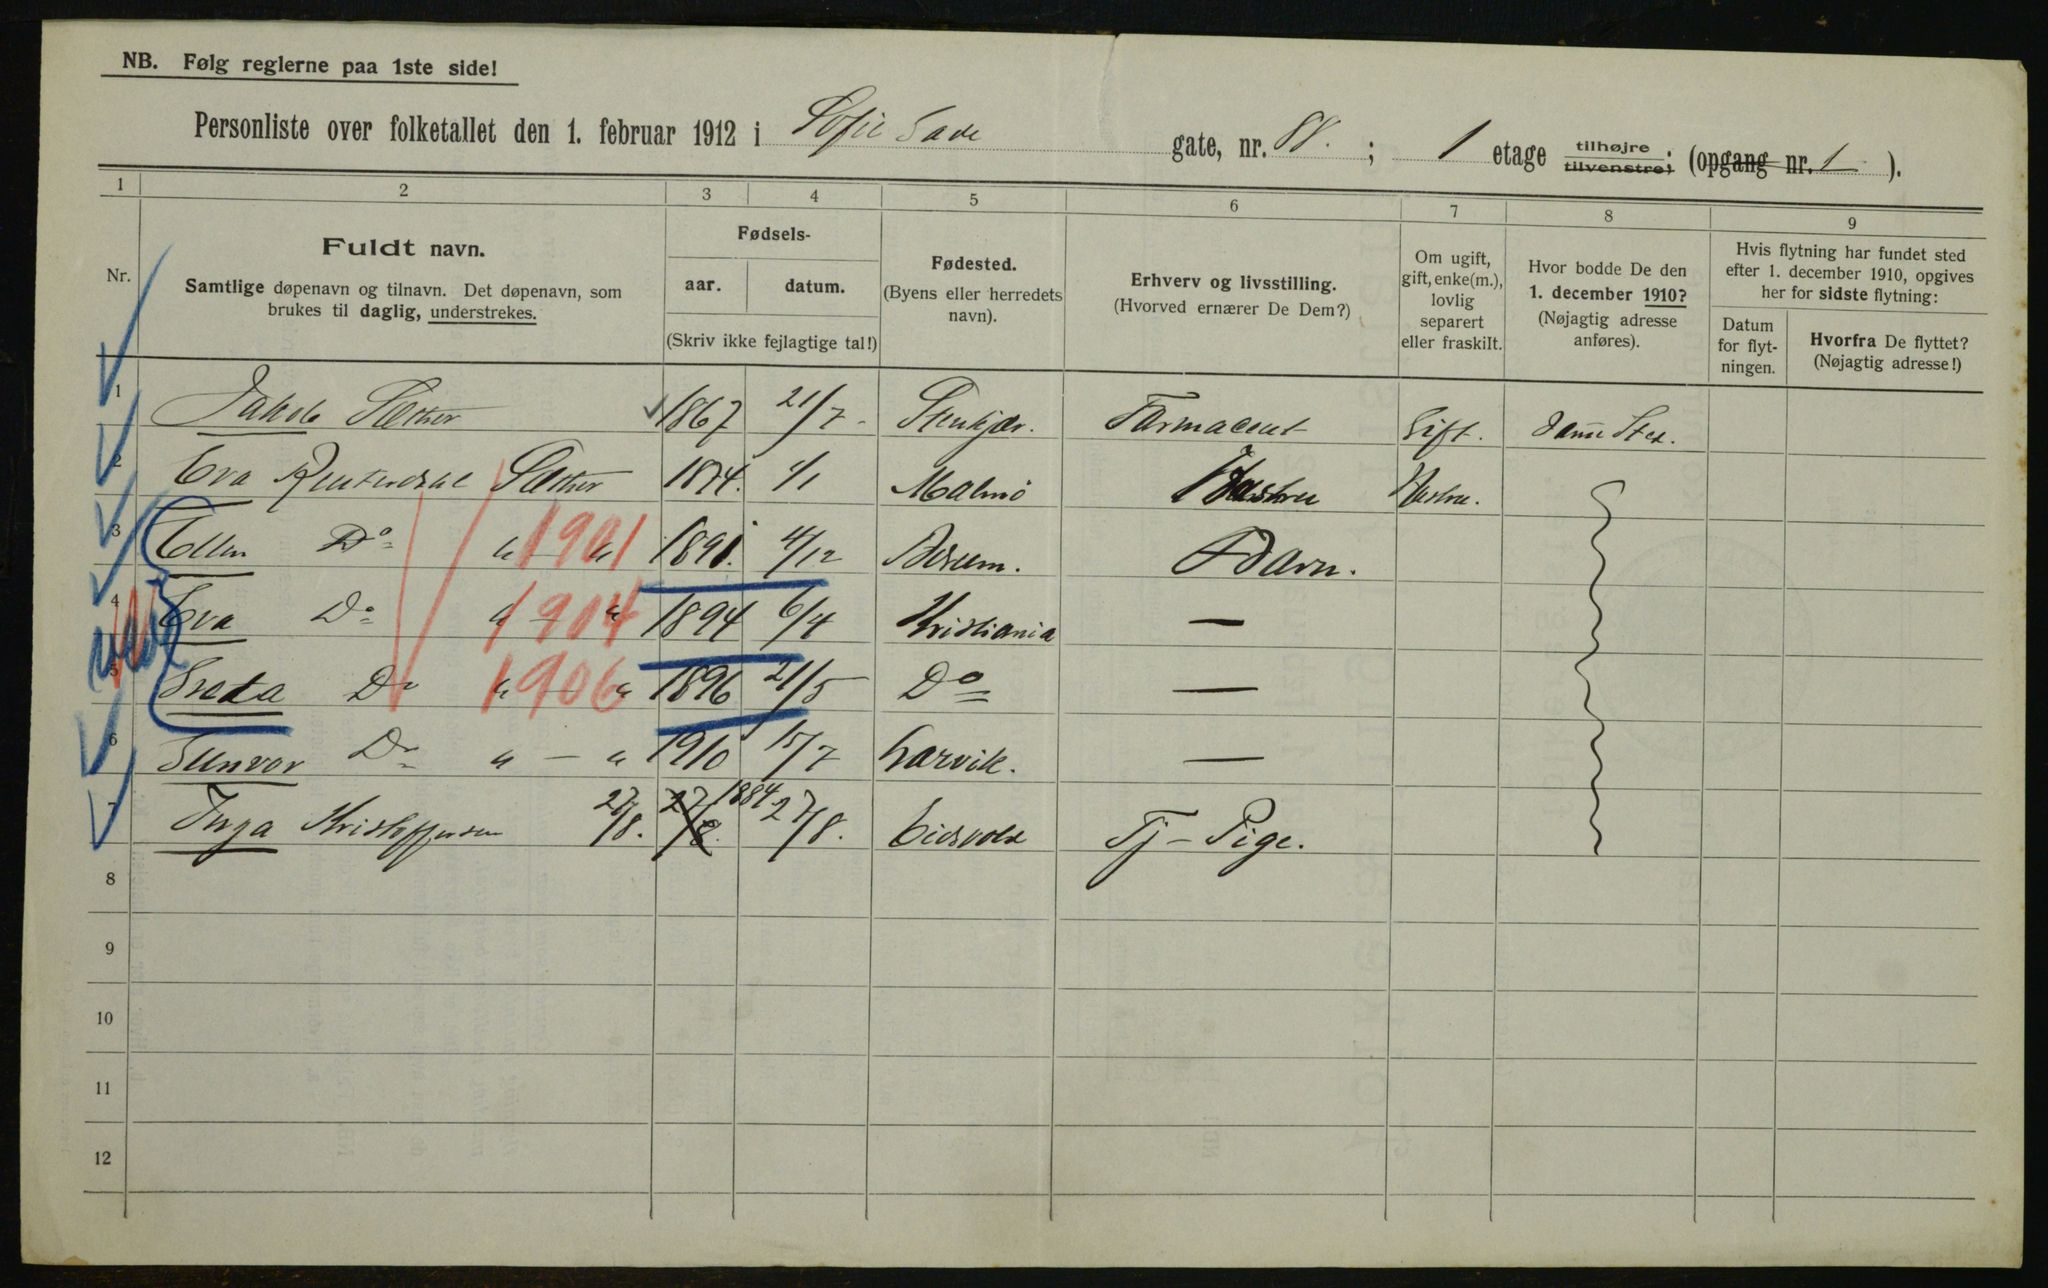 NB. Følg reglerne paa 1ste side!
Personliste over folketallet den 1. februar 1912 i Sofie Gade gate, nr. 88. ; 1 etage tilhøjre tilvenstre; (opgang nr. 1 ).
1 2 3 4 5 6 7 8 9
Nr.
Fuldt navn.
Samtlige døpenavn og tilnavn. Det døpenavn, som
brukes til daglig, understrekes.
Fødsels-
aar. datum.
(Skriv ikke fejlagtige tal!)
Fødested.
(Byens eller herredets
navn).
Erhverv og livsstilling.
(Hvorved ernærer De Dem?)
Om ugift,
gift, enke(m.),
lovlig
separert
eller fraskilt.
Hvor bodde De den
1. december 1910?
(Nøjagtig adresse
anføres).
Hvis flytning har fundet sted
efter 1. december 1910, opgives
her for sidste flytning:
Datum
for flyt-
ningen.
Hvorfra De flyttet?
(Nøjagtig adresse!)
1 Jakob Sæther 1867 21/7 Stenkjær. Farmaceut Gift. Samme Sted.
2 Eva Reuterdahl Sæther 1874. 4/1 Malmö Hustru Hustru.
3 Ellen Do " — " 1901 1891. 4/12 Bærum. Barn.
4 Eva Do " — " 1904 1894 6/4 Kristiania —
5 Do " — " 1906 1896 21/5 Do —
6 Gunvor Do " — " 1910 15/7 Larvik. —
7 Inga Kristoffersen 27/8. 27/8. 1884 27/8. Eidsvold Tj-Pige.
8
9
10
11
12